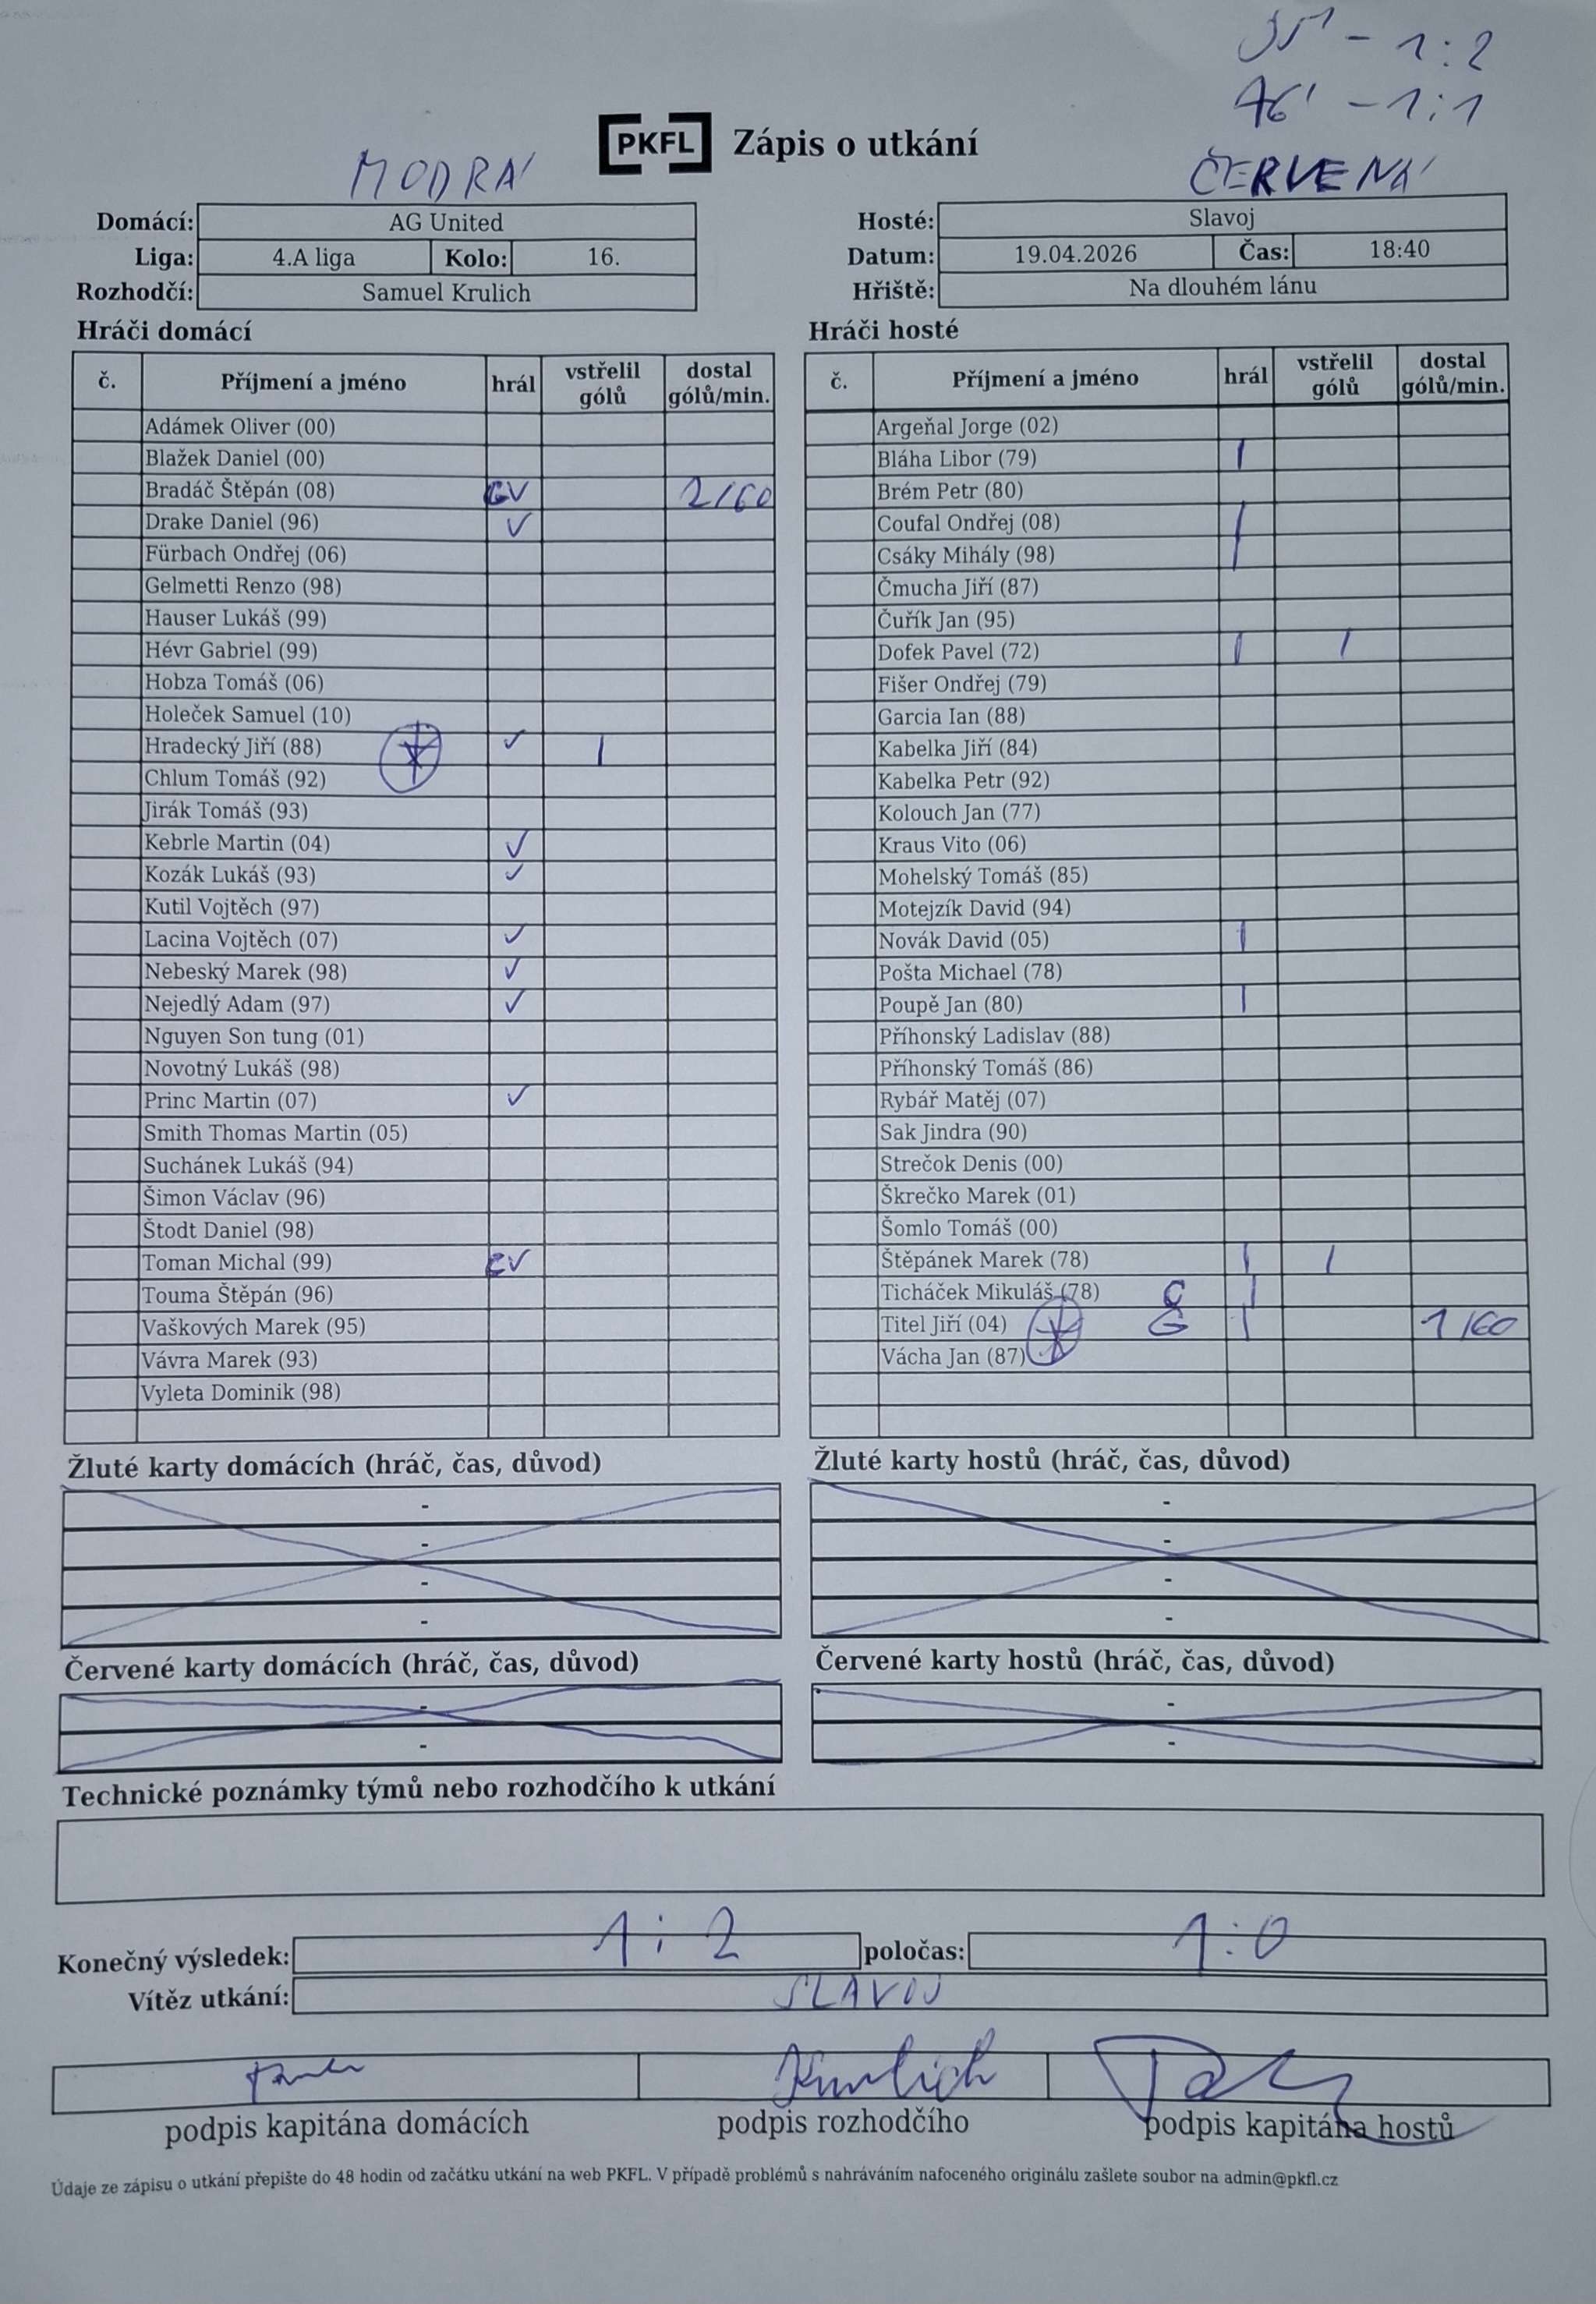 35' - 1:2
46' - 1:1
PKFL Zápis o utkání
MODRÁ
ČERVENÁ
Domácí: AG United
Liga: 4.A liga Kolo: 16.
Rozhodčí: Samuel Krulich
Hosté: Slavoj
Datum: 19.04.2026 Čas: 18:40
Hřiště: Na dlouhém lánu
Hráči domácí
č. Příjmení a jméno hrál vstřelil gólů dostal gólů/min.
Adámek Oliver (00)
Blažek Daniel (00)
Bradáč Štěpán (08) G✓ 2/60
Drake Daniel (96) ✓
Fürbach Ondřej (06)
Gelmetti Renzo (98)
Hauser Lukáš (99)
Hévr Gabriel (99)
Hobza Tomáš (06)
Holeček Samuel (10)
Hradecký Jiří (88) ✓ 1
Chlum Tomáš (92)
Jirák Tomáš (93)
Kebrle Martin (04) ✓
Kozák Lukáš (93) ✓
Kutil Vojtěch (97)
Lacina Vojtěch (07) ✓
Nebeský Marek (98) ✓
Nejedlý Adam (97) ✓
Nguyen Son tung (01)
Novotný Lukáš (98)
Princ Martin (07) ✓
Smith Thomas Martin (05)
Suchánek Lukáš (94)
Šimon Václav (96)
Štodt Daniel (98)
Toman Michal (99) C✓
Touma Štěpán (96)
Vaškových Marek (95)
Vávra Marek (93)
Vyleta Dominik (98)
Hráči hosté
č. Příjmení a jméno hrál vstřelil gólů dostal gólů/min.
Argeňal Jorge (02)
Bláha Libor (79) |
Brém Petr (80)
Coufal Ondřej (08) |
Csáky Mihály (98) |
Čmucha Jiří (87)
Čuřík Jan (95)
Dofek Pavel (72) | 1
Fišer Ondřej (79)
Garcia Ian (88)
Kabelka Jiří (84)
Kabelka Petr (92)
Kolouch Jan (77)
Kraus Vito (06)
Mohelský Tomáš (85)
Motejzík David (94)
Novák David (05) |
Pošta Michael (78)
Poupě Jan (80) |
Příhonský Ladislav (88)
Příhonský Tomáš (86)
Rybář Matěj (07)
Sak Jindra (90)
Strečok Denis (00)
Škrečko Marek (01)
Šomlo Tomáš (00)
Štěpánek Marek (78) | 1
Ticháček Mikuláš (78) C |
Titel Jiří (04) G | 1/60
Vácha Jan (87)
Žluté karty domácích (hráč, čas, důvod)
-
-
-
-
Žluté karty hostů (hráč, čas, důvod)
-
-
-
-
Červené karty domácích (hráč, čas, důvod)
-
-
Červené karty hostů (hráč, čas, důvod)
-
-
Technické poznámky týmů nebo rozhodčího k utkání
Konečný výsledek: 1:2 poločas: 1:0
Vítěz utkání: SLAVOJ
Krulich
podpis kapitána domácích podpis rozhodčího podpis kapitána hostů
Údaje ze zápisu o utkání přepište do 48 hodin od začátku utkání na web PKFL. V případě problémů s nahráváním nafoceného originálu zašlete soubor na admin@pkfl.cz